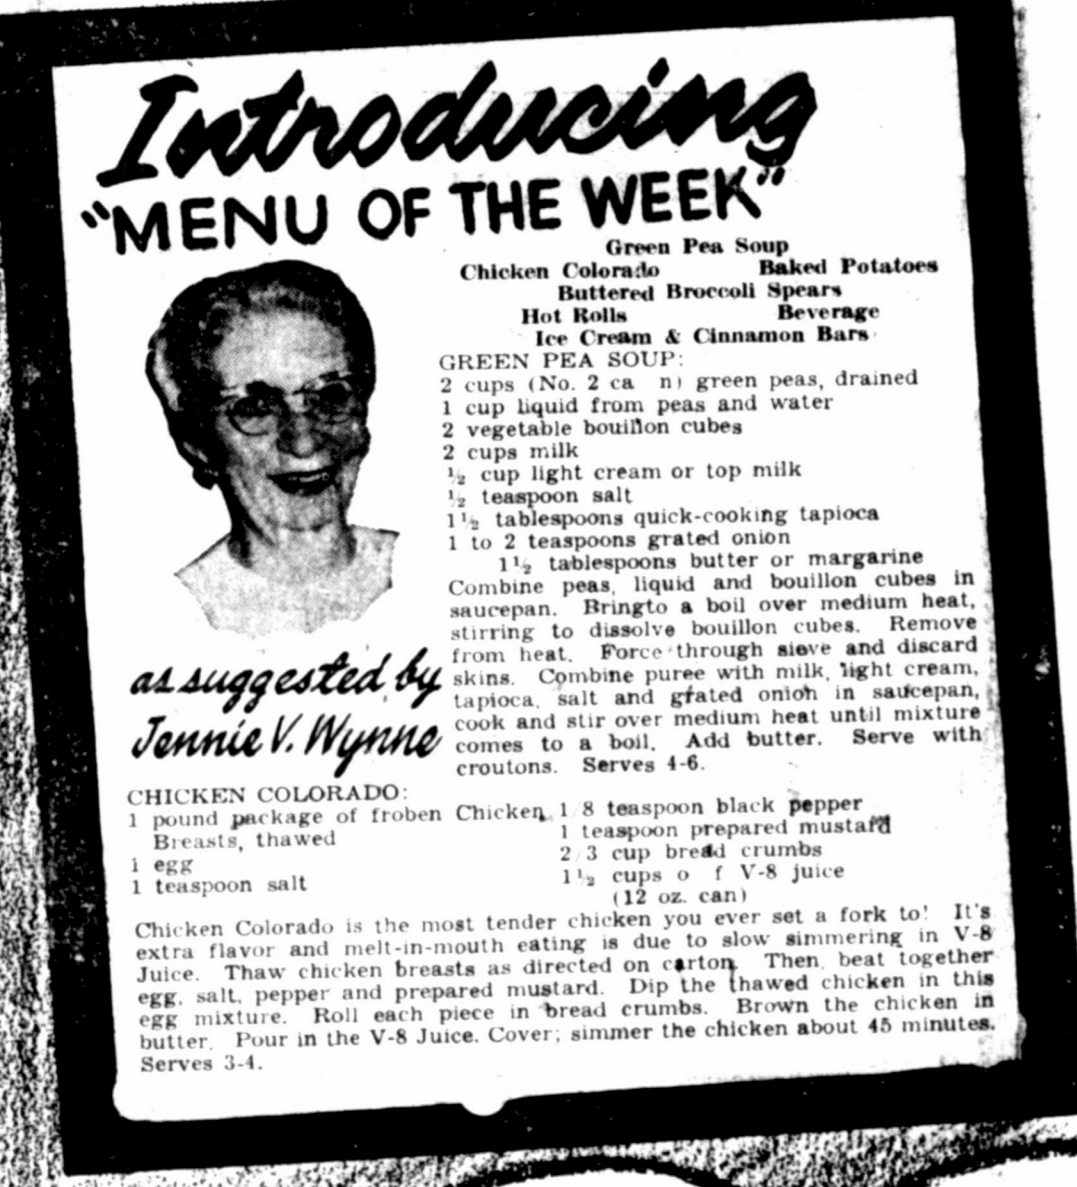 Introducing
"MENU OF THE WEEK"
Green Pea Soup
Chicken Colorado Baked Potatoes
Buttered Broccoli Spears
Hot Rolls Beverage
Ice Cream & Cinnamon Bars
GREEN PEA SOUP:
2 cups (No. 2 ca n) green peas, drained
1 cup liquid from peas and water
2 vegetable bouillon cubes
2 cups milk
½ cup light cream or top milk
½ teaspoon salt
1½ tablespoons quick-cooking tapioca
1 to 2 teaspoons grated onion
1½ tablespoons butter or margarine
Combine peas, liquid and bouillon cubes in
saucepan. Bringto a boil over medium heat,
stirring to dissolve bouillon cubes. Remove
from heat. Force through sieve and discard
skins. Combine puree with milk, light cream,
tapioca, salt and grated onion in saucepan,
cook and stir over medium heat until mixture
comes to a boil. Add butter. Serve with
croutons. Serves 4-6.
as suggested by
Jennie V. Wynne
CHICKEN COLORADO:
1 pound package of froben Chicken
Breasts, thawed
1 egg
1 teaspoon salt
1/8 teaspoon black pepper
1 teaspoon prepared mustard
2/3 cup bread crumbs
1½ cups o f V-8 juice
(12 oz. can)
Chicken Colorado is the most tender chicken you ever set a fork to! It's
extra flavor and melt-in-mouth eating is due to slow simmering in V-8
Juice. Thaw chicken breasts as directed on carton. Then, beat together
egg, salt, pepper and prepared mustard. Dip the thawed chicken in this
egg mixture. Roll each piece in bread crumbs. Brown the chicken in
butter. Pour in the V-8 Juice. Cover; simmer the chicken about 45 minutes.
Serves 3-4.